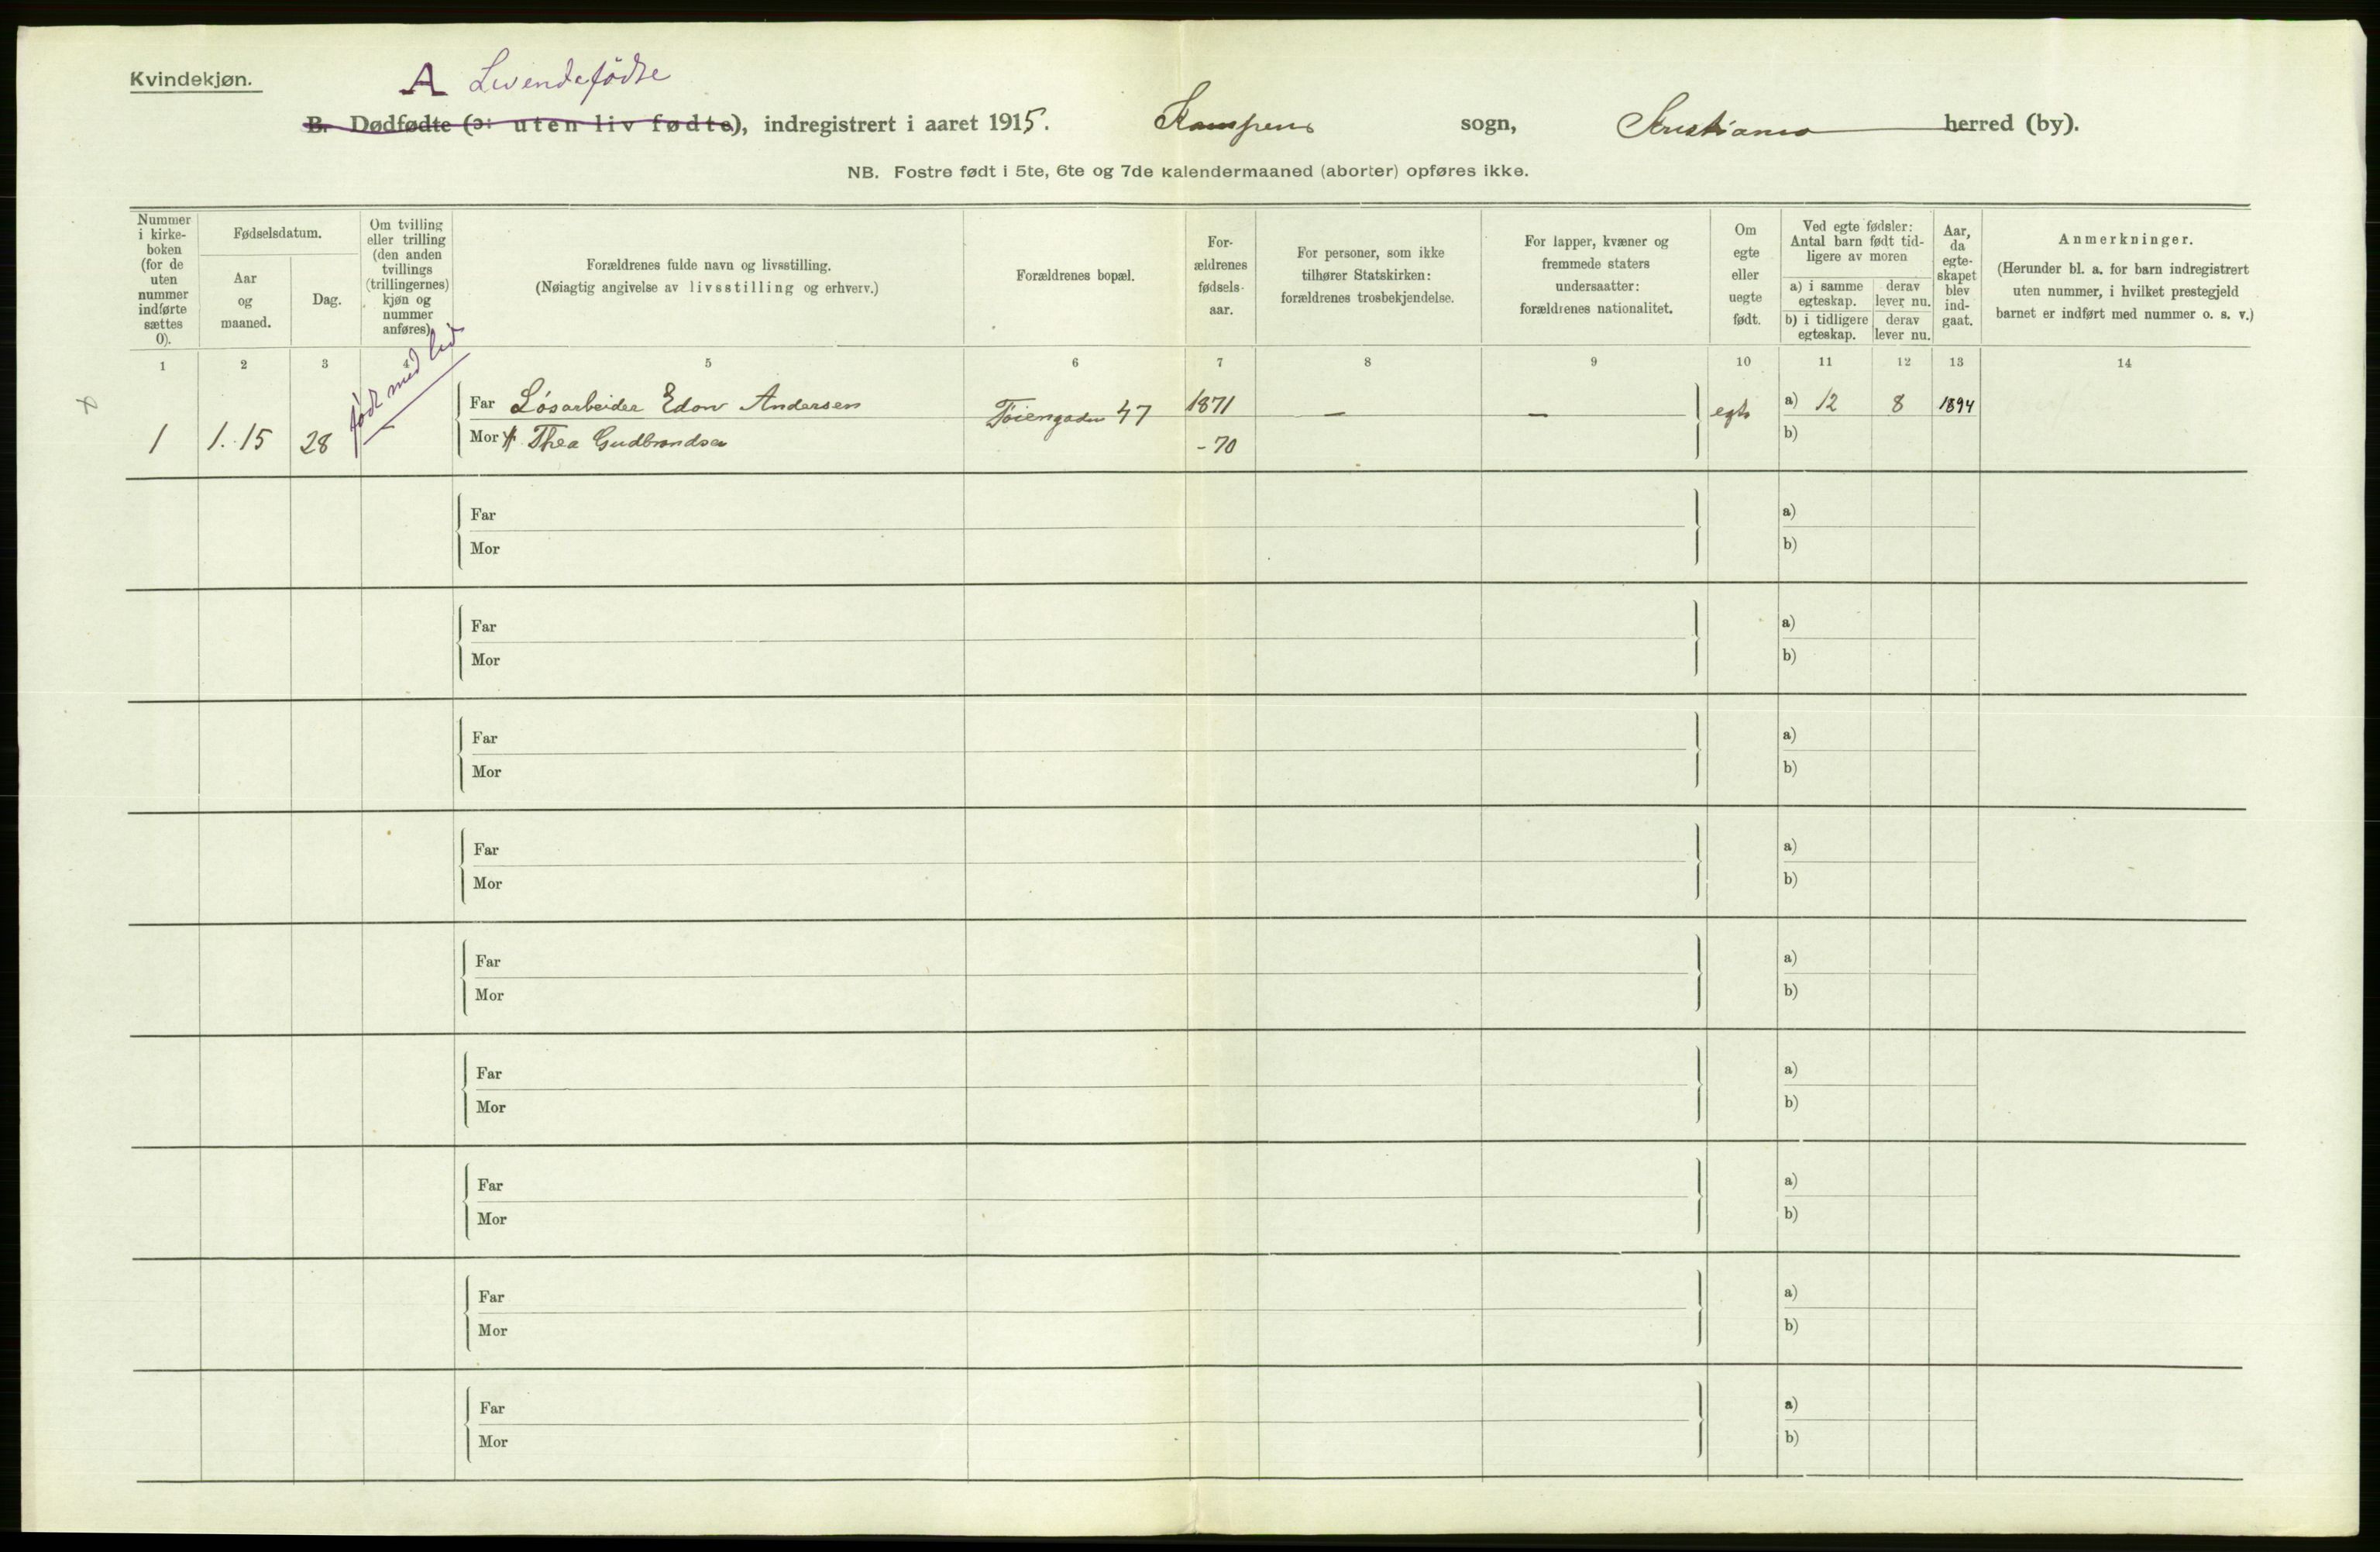 Kvindekjøn.
A Levendefödte
B. Dødfødte (ɔ: uten liv fødte), indregistrert i aaret 1915. Kampens sogn, Kristiania herred (by).
NB. Fostre født i 5te, 6te og 7de kalendermaaned (aborter) opføres ikke.
Nummer
i kirke-
boken
(for de
uten
nummer
indførte
sættes
0).
Fødselsdatum.
Aar
og
maaned.
Dag.
Om tvilling
eller trilling
(den anden
tvillings
(trillingernes)
kjøn og
nummer
anføres).
Forældrenes fulde navn og livsstilling.
(Nøiagtig angivelse av livsstilling og erhverv.)
Forældrenes bopæl.
For-
ældrenes
fødsels-
aar.
For personer, som ikke
tilhører Statskirken:
forældrenes trosbekjendelse.
For lapper, kvæner og
fremmede staters
undersaatter:
forældrenes nationalitet.
Om
egte
eller
uegte
født.
Ved egte fødsler:
Antal barn født tid-
ligere av moren
a) i samme
egteskap.
derav
lever nu.
b) i tidligere
egteskap.
derav
lever nu.
Aar,
da
egte-
skapet
blev
ind-
gaat.
Anmerkninger.
(Herunder bl. a. for barn indregistrert
uten nummer, i hvilket prestegjeld
barnet er indført med nummer o. s. v.)
1 2 3 4 5 6 7 8 9 10 11 12 13 14
født med liv
Far Løsarbeider Andersen Töiengaden 47 1871 — — egte a) 12 8 1894
1 1. 15 28 Mor Thea Gudbrandsen - 70 b)
Far a)
Mor b)
Far a)
Mor b)
Far a)
Mor b)
Far a)
Mor b)
Far a)
Mor b)
Far a)
Mor b)
Far a)
Mor b)
Far a)
Mor b)
Far a)
Mor b)